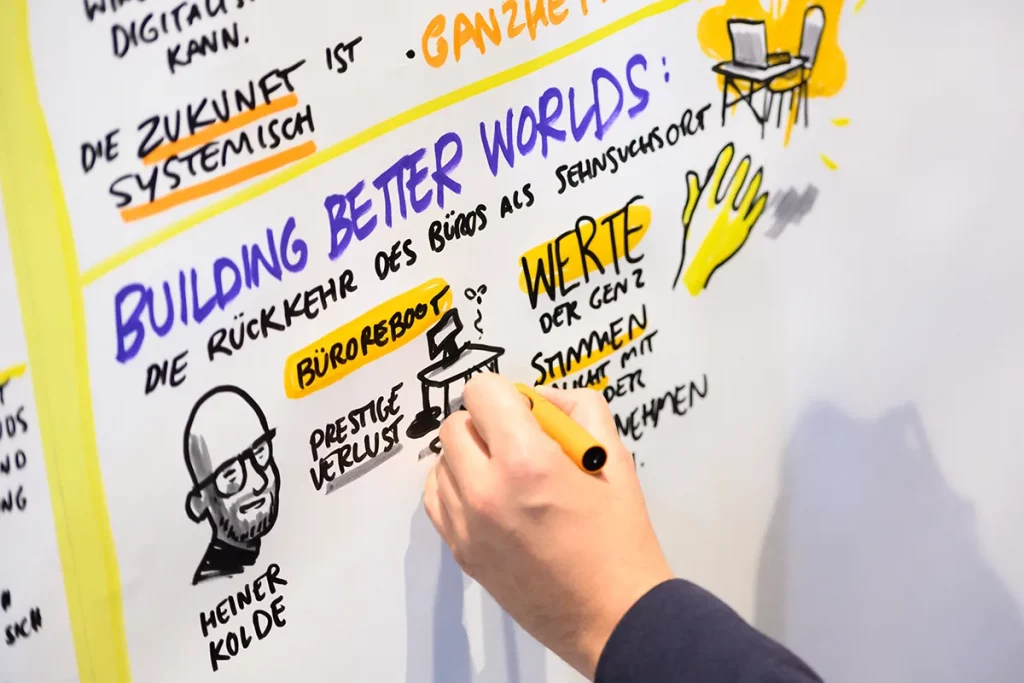 DIGITALIS
KANN.
DIE ZUKUNFT IST
SYSTEMISCH
· GANZHE
BUILDING BETTER WORLDS:
DIE RÜCKKEHR DES BÜROS ALS SEHNSUCHSORT
BÜROREBOOT
PRESTIGE
VERLUST
HEINER
KOLDE
WERTE
DER GEN Z
STIMMEN
NICHT MIT
DER
NEHMEN
ND
NG
SICH